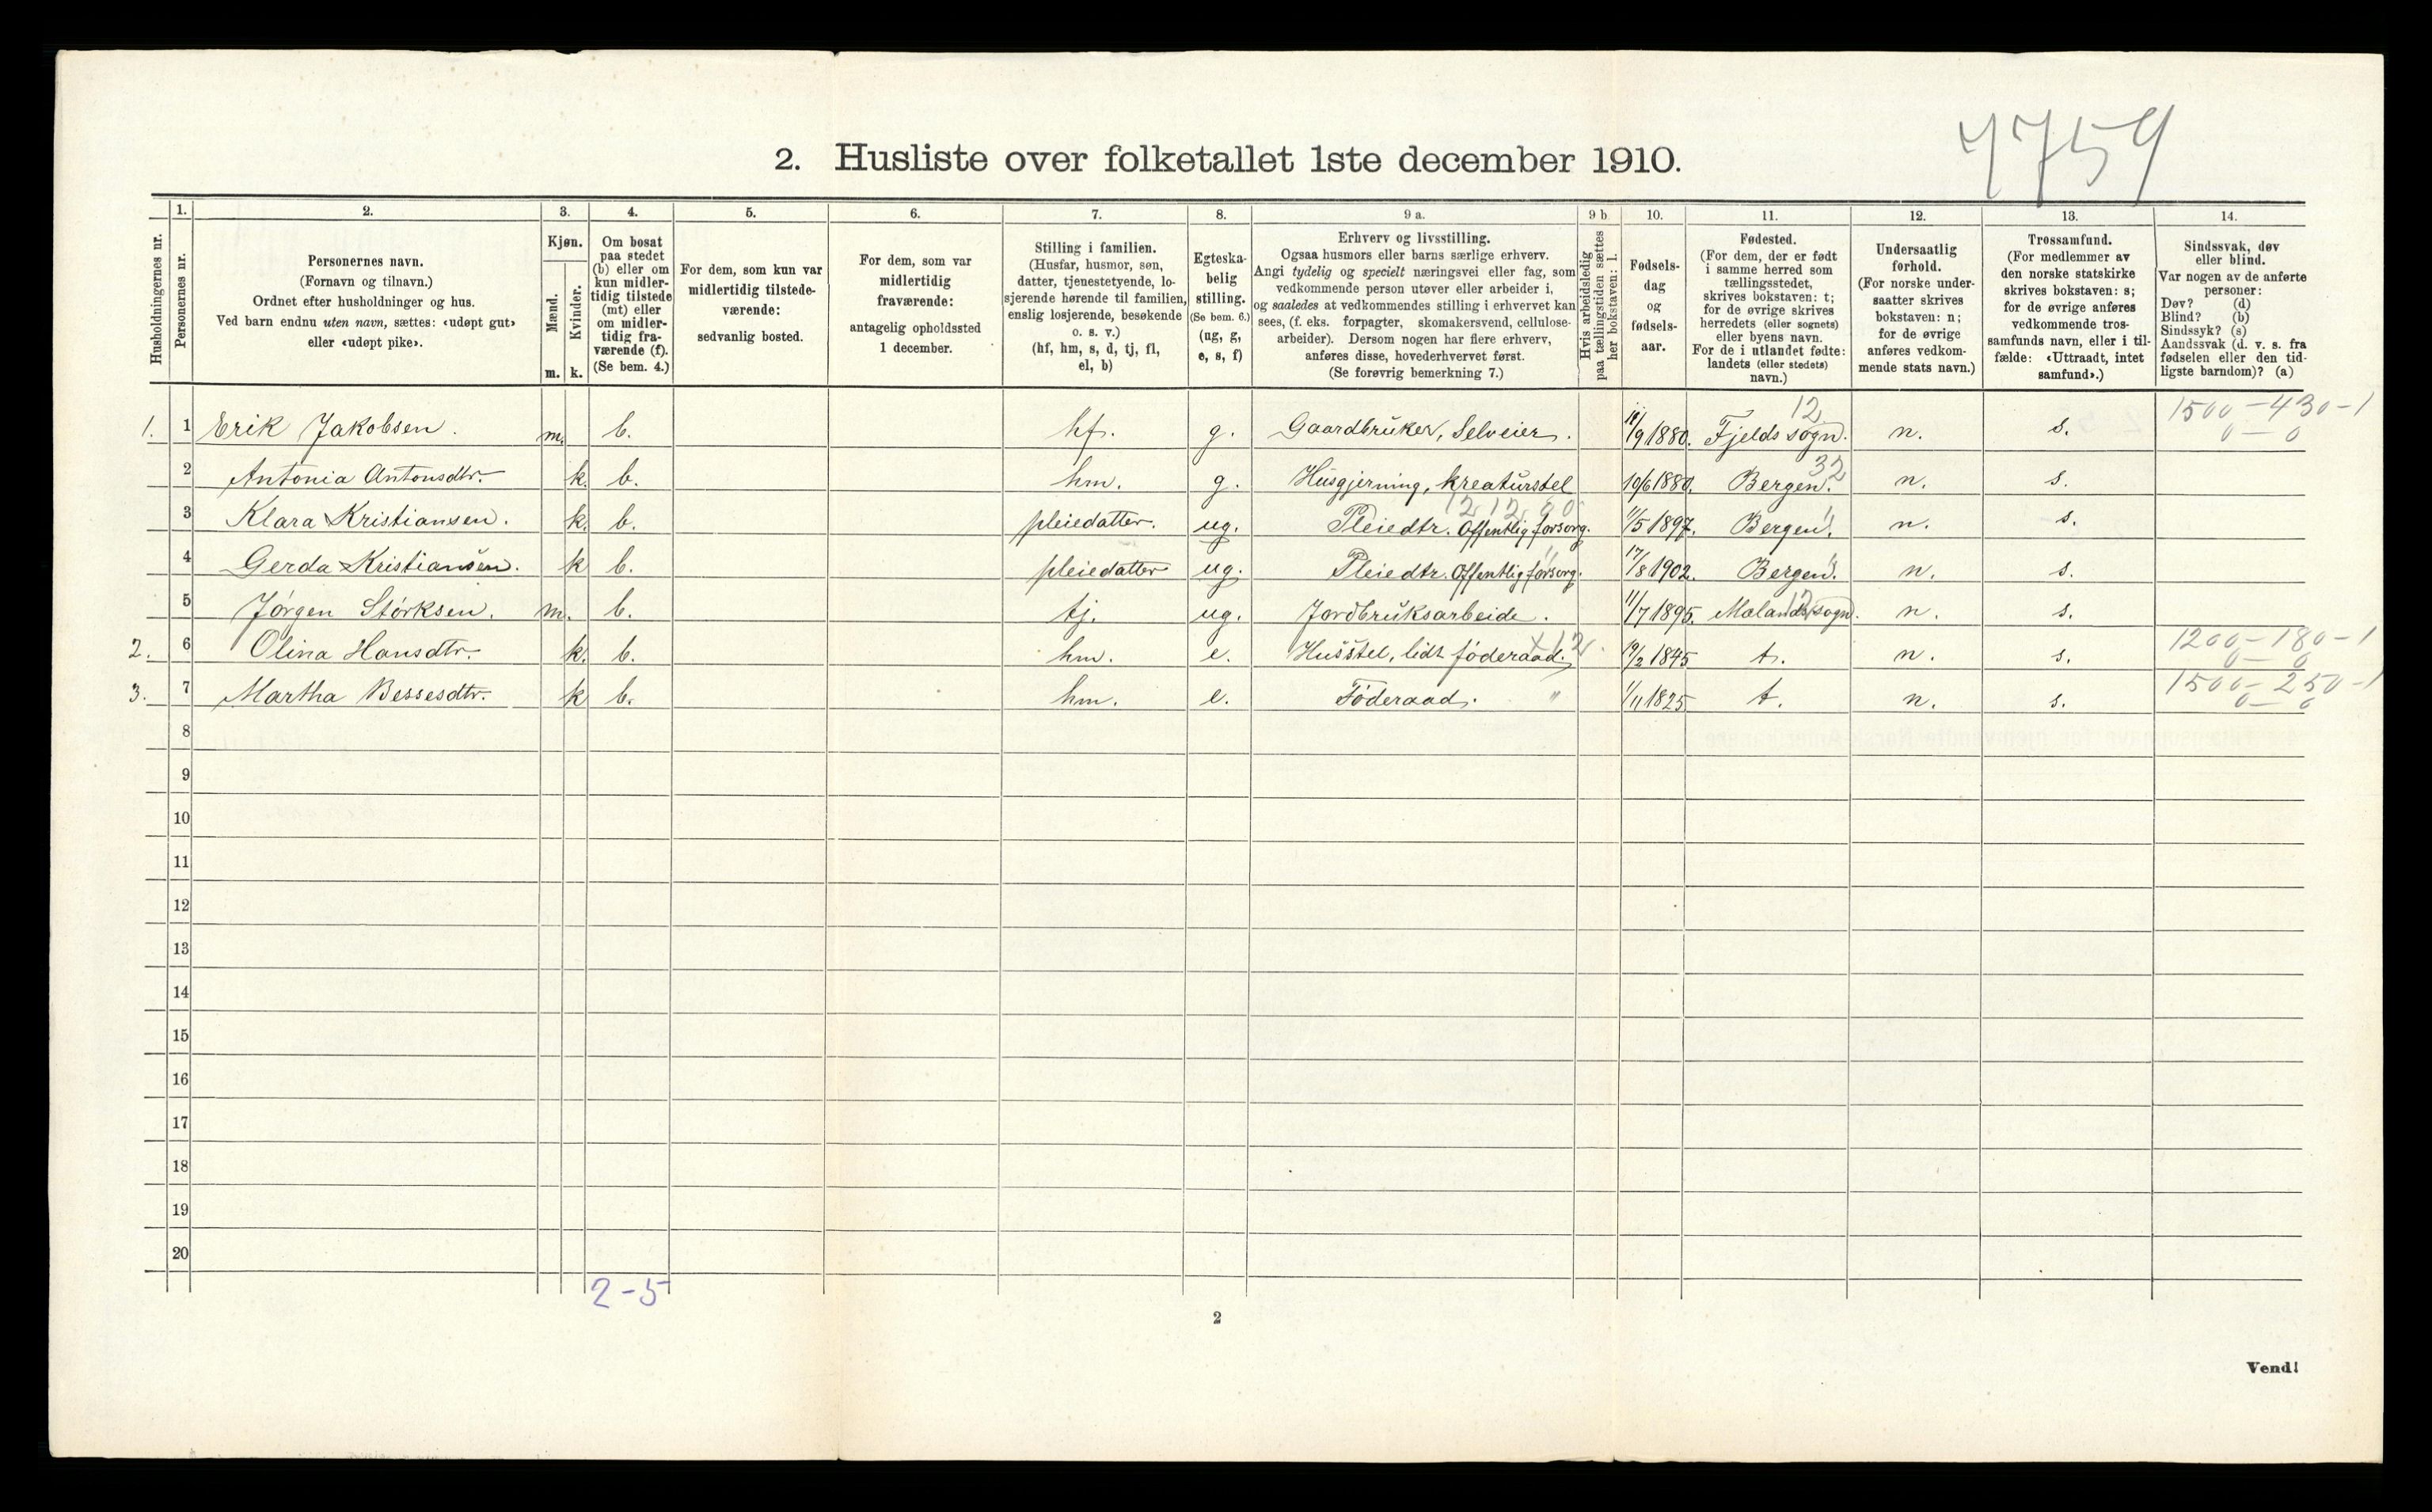 7759
2. Husliste over folketallet 1ste december 1910.
1. 2. 3. 4. 5. 6. 7. 8. 9 a. 9 b 10. 11. 12. 13. 14.
Husholdningernes nr.
Personernes nr.
Personernes navn.
(Fornavn og tilnavn.)
Ordnet efter husholdninger og hus.
Ved barn endnu uten navn, sættes: «udøpt gut»
eller «udøpt pike».
Kjøn.
Mænd.
Kvinder.
m. k.
Om bosat
paa stedet
(b) eller om
kun midler-
tidig tilstede
(mt) eller
om midler-
tidig fra-
værende (f).
(Se bem. 4.)
For dem, som kun var
midlertidig tilstede-
værende:
sedvanlig bosted.
For dem, som var
midlertidig
fraværende:
antagelig opholdssted
1 december.
Stilling i familien.
(Husfar, husmor, søn,
datter, tjenestetyende, lo-
sjerende hørende til familien,
enslig losjerende, besøkende
o. s. v.)
(hf, hm, s, d, tj, fl,
el, b)
Egteska-
belig
stilling.
(Se bem. 6.)
(ug, g,
e, s, f)
Erhverv og livsstilling.
Ogsaa husmors eller barns særlige erhverv.
Angi tydelig og specielt næringsvei eller fag, som
vedkommende person utøver eller arbeider i,
og saaledes at vedkommendes stilling i erhvervet kan
sees, (f. eks. forpagter, skomakersvend, cellulose-
arbeider). Dersom nogen har flere erhverv,
anføres disse, hovederhvervet først.
(Se forøvrig bemerkning 7.)
Hvis arbeidsledig
paa tællingstiden sættes
her bokstaven: l.
Fødsels-
dag
og
fødsels-
aar.
Fødested.
(For dem, der er født
i samme herred som
tællingsstedet,
skrives bokstaven: t;
for de øvrige skrives
herredets (eller sognets)
eller byens navn.
For de i utlandet fødte:
landets (eller stedets)
navn.)
Undersaatlig
forhold.
(For norske under-
saatter skrives
bokstaven: n;
for de øvrige
anføres vedkom-
mende stats navn.)
Trossamfund.
(For medlemmer av
den norske statskirke
skrives bokstaven: s;
for de øvrige anføres
vedkommende tros-
samfunds navn, eller i til-
fælde: «Uttraadt, intet
samfund».)
Sindssvak, døv
eller blind.
Var nogen av de anførte
personer:
Døv? (d)
Blind? (b)
Sindssyk? (s)
Aandssvak (d. v. s. fra
fødselen eller den tid-
ligste barndom)? (a)
12 1500-430-1
1. 1 Erik Jakobsen. m. b. hf. g. Gaardbruker, Selveier. 9 1880. Fjelds sogn. n. s. 0-0
32
2 Antonia Antonsdtr. k. b. hm. g. Husgjerning, kreaturstel 10/6 1880. Bergen. n. s.
3 Klara Kristiansen. k. b. pleiedatter. ug. Pleiedtr. Offentlig forsorg. 11/5 1897. Bergen. n. s.
4 Gerda Kristiansen. k b. pleiedatter ug. Pleiedtr. Offentlig forsorg. 17/8 1902. Bergen. n. s.
5 Jørgen Størksen. m. b. tj. ug. Jordbruksarbeide. 11/7 1895. Malands sogn. n. s.
x12. 1200-180-1
2. 6 Olina Hansdtr. k. b. hm. e. Husstel, lidt føderaad. 19/2 1845 t. n. s. 0-0
1500-250-1
3. 7 Martha Bessesdtr. k b. hm. e. Føderaad. " 1/11 1825 t. n. s. 0-0
8
9
10
11
12
13
14
15
16
17
18
19
20
2-5
2
Vend!